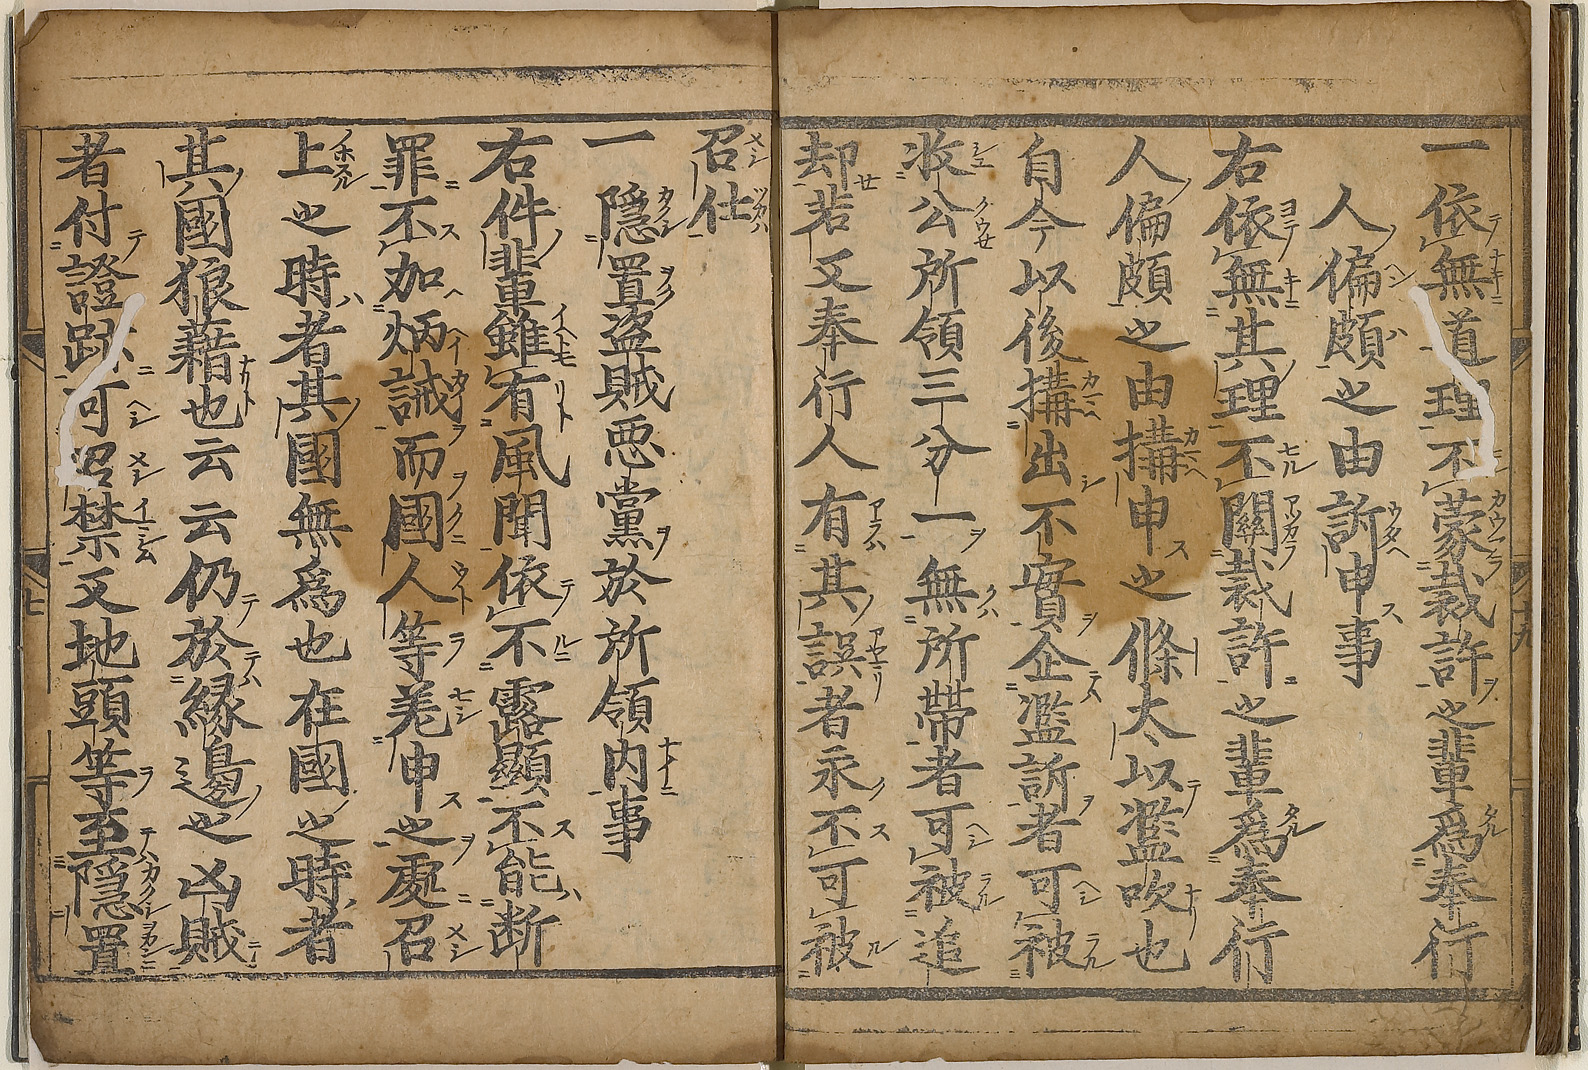 一依無道理不蒙裁許之輩為奉行
人偏頗之由訴申事
右依無其理不關裁許之輩為奉行
人偏頗之由搆申之條太以濫吹也
自今以後搆出不實企濫訴者可被
收公所領三分一無所帶者可被追
却若又奉行人有其誤者永不可被
召仕
一隱置盗賊悪黨於所領内事
右件輩雖有風聞依不露顯不能断
罪不加炳誡而國人等差申之處召
上之時者其國無為也在國之時者
其國狼藉也云云仍於縁邊之凶賊
者付證跡可召禁又地頭等至隱置